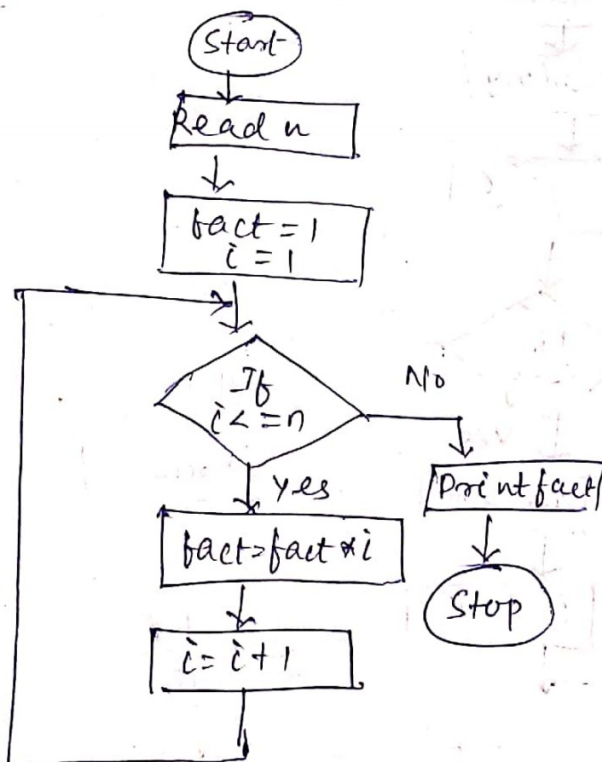 Start
Read n
fact = 1
i = 1
If
i < = n
No
yes
Print fact
fact = fact * i
Stop
i = i + 1